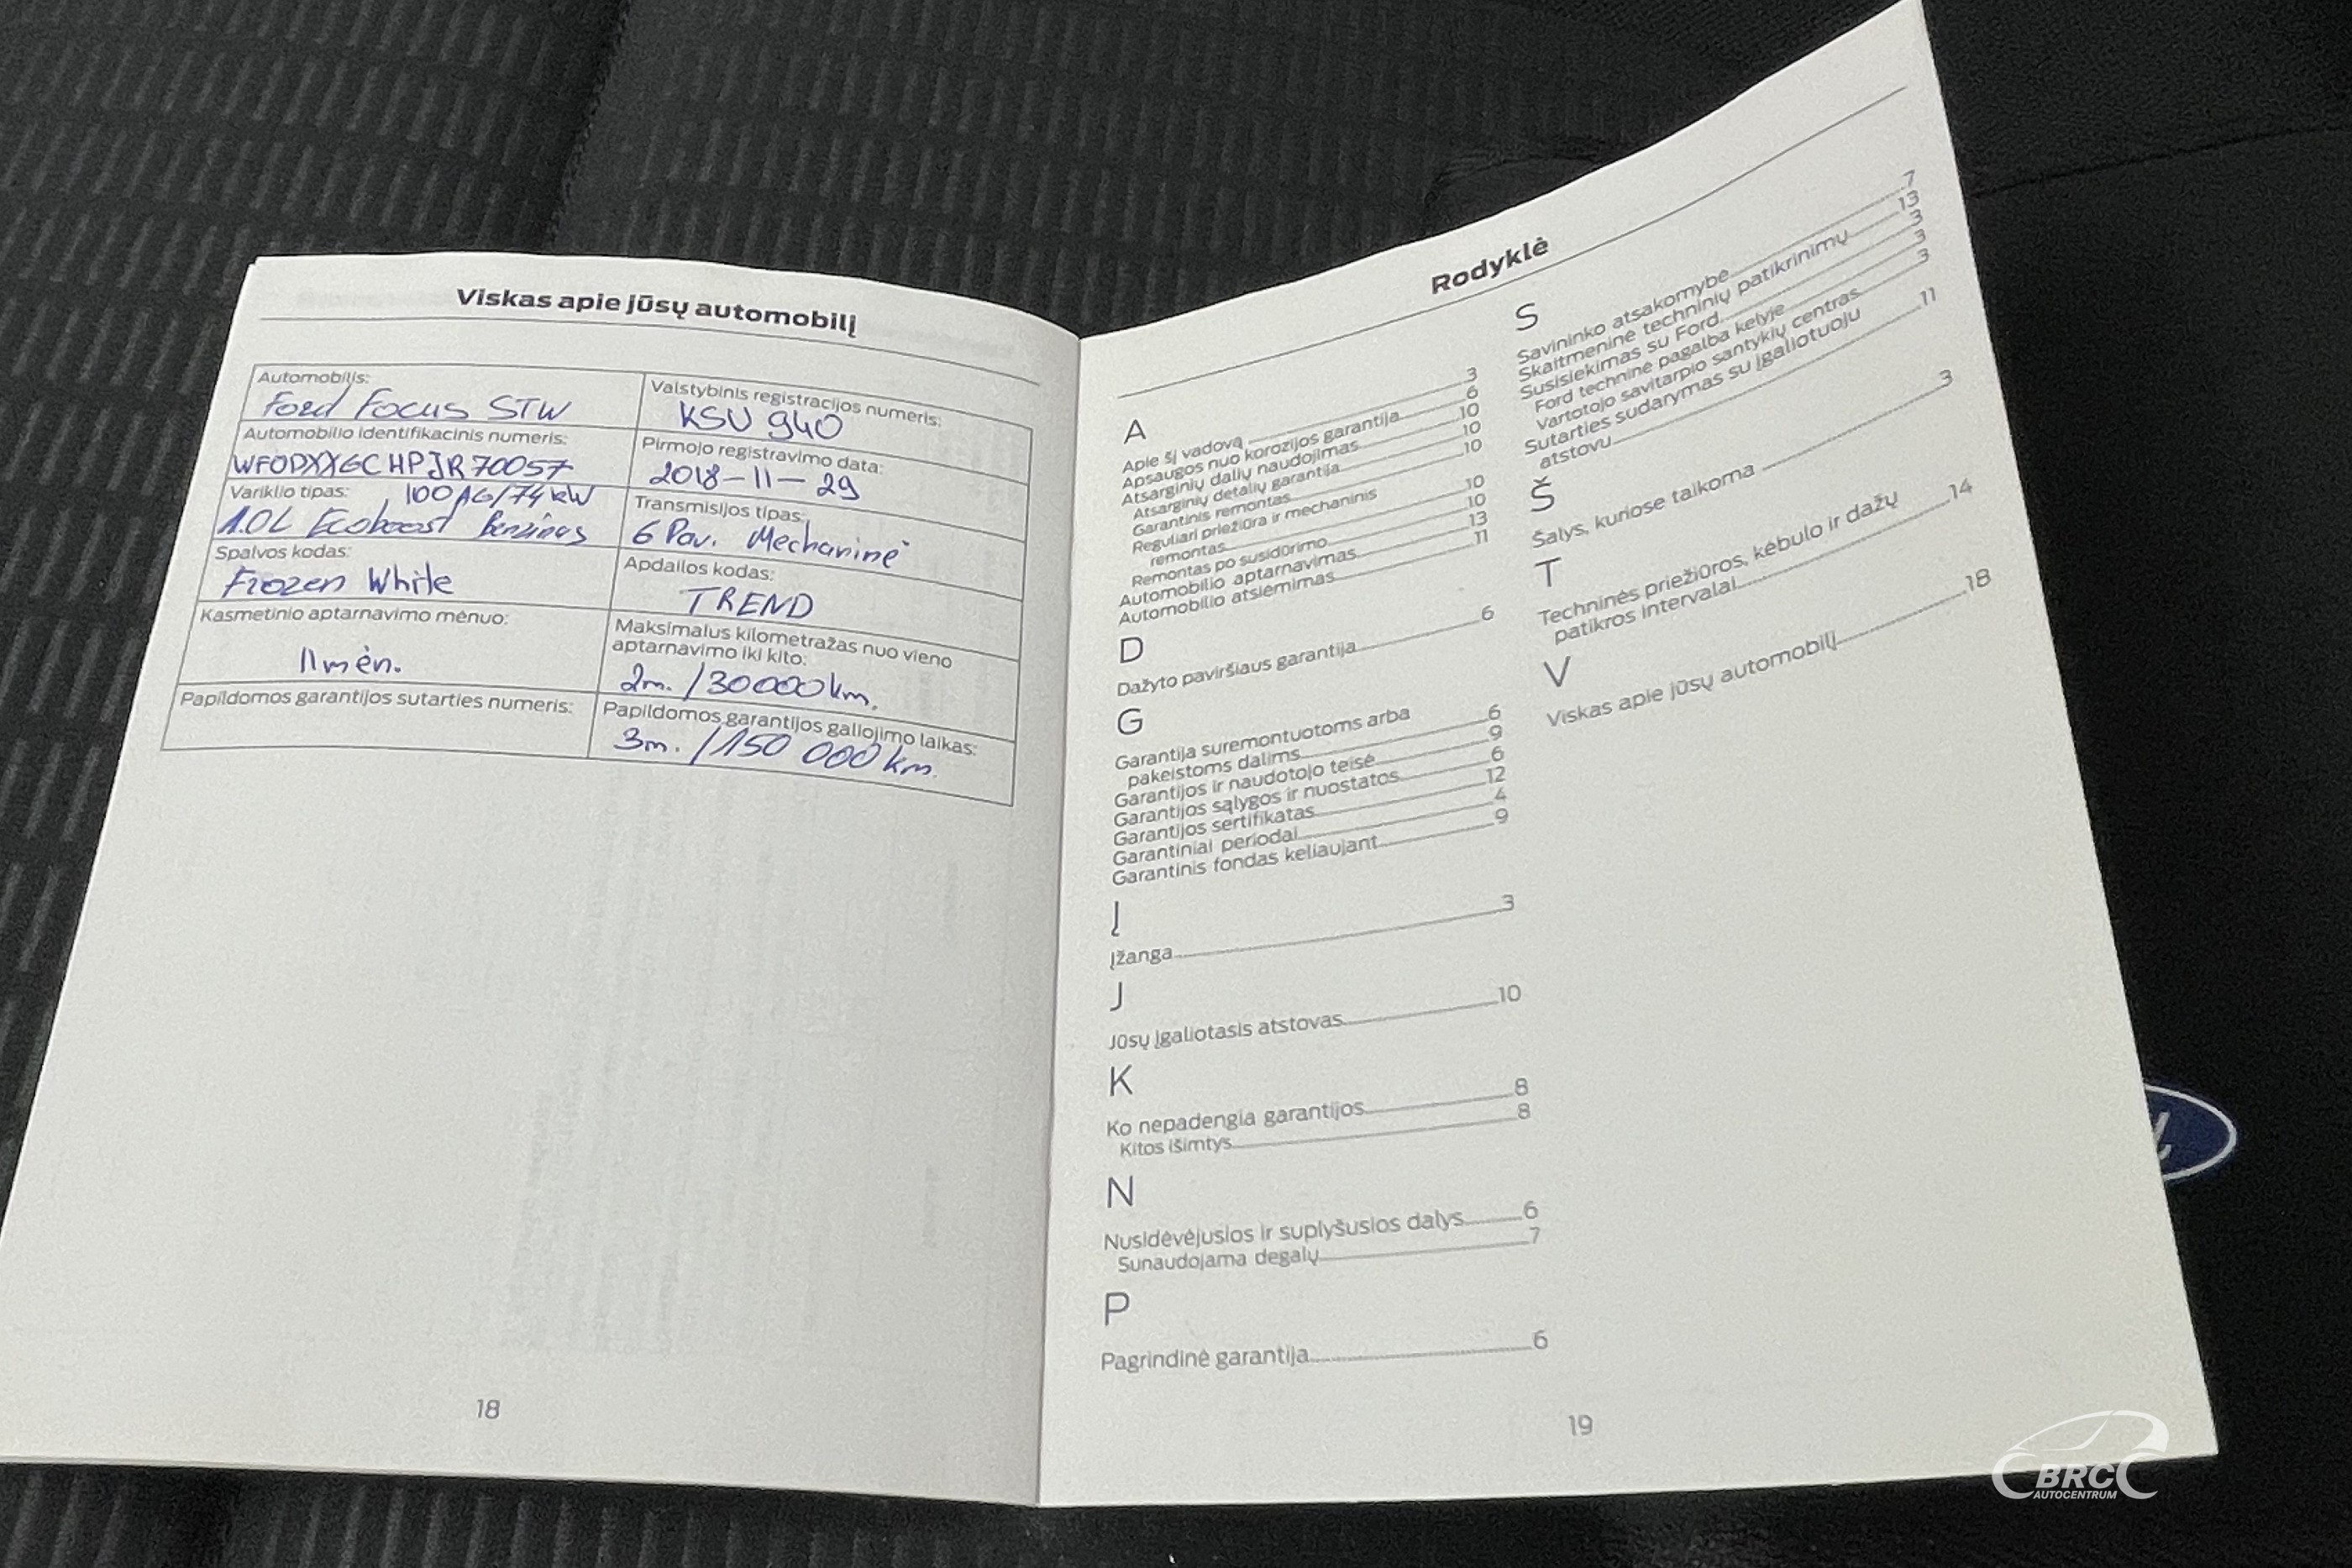 Viskas apie jūsų automobilį
Automobilis:
Ford Focus STW
Valstybinis registracijos numeris:
KSU 940
Automobilio identifikacinis numeris:
WF0PXXGCHPJR70057
Pirmojo registravimo data:
2018-11-29
Variklio tipas:
100AG/74kW
1.0L Ecoboost Benzinas
Transmisijos tipas:
6 Pav. Mechaninė
Spalvos kodas:
Frozen White
Apdailos kodas:
TREND
Kasmetinio aptarnavimo mėnuo:
11mėn.
Maksimalus kilometražas nuo vieno
aptarnavimo iki kito:
2m./30000km.
Papildomos garantijos sutarties numeris:
Papildomos garantijos galiojimo laikas:
3m./150 000km.
18
Rodyklė
A
Apie šį vadovą 3
Apsaugos nuo korozijos garantija 6
Atsarginių dalių naudojimas 10
Atsarginių detalių garantija 10
Garantinis remontas 10
Reguliari priežiūra ir mechaninis
remontas 10
Remontas po susidūrimo 10
Automobilio aptarnavimas 13
Automobilio atsiėmimas 11
D
Dažyto paviršiaus garantija 6
G
Garantija suremontuotoms arba
pakeistoms dalims 6
Garantijos ir naudotojo teisė 9
Garantijos sąlygos ir nuostatos 6
Garantijos sertifikatas 12
Garantiniai periodai 4
Garantinis fondas keliaujant 9
Į
Įžanga 3
J
Jūsų įgaliotasis atstovas 10
K
Ko nepadengia garantijos 8
Kitos išimtys 8
N
Nusidėvėjusios ir suplyšusios dalys 6
Sunaudojama degalų 7
P
Pagrindinė garantija 6
S
Savininko atsakomybė 7
Skaitmeninė techninių patikrinimų 13
Susisiekimas su Ford 3
Ford techninė pagalba kelyje 3
Vartotojo savitarpio santykių centras 3
Sutarties sudarymas su įgaliotuoju
atstovu 11
Š
Šalys, kuriose taikoma 3
T
Techninės priežiūros, kėbulo ir dažų
patikros intervalai 14
V
Viskas apie jūsų automobilį 18
19
BRC
AUTOCENTRUM